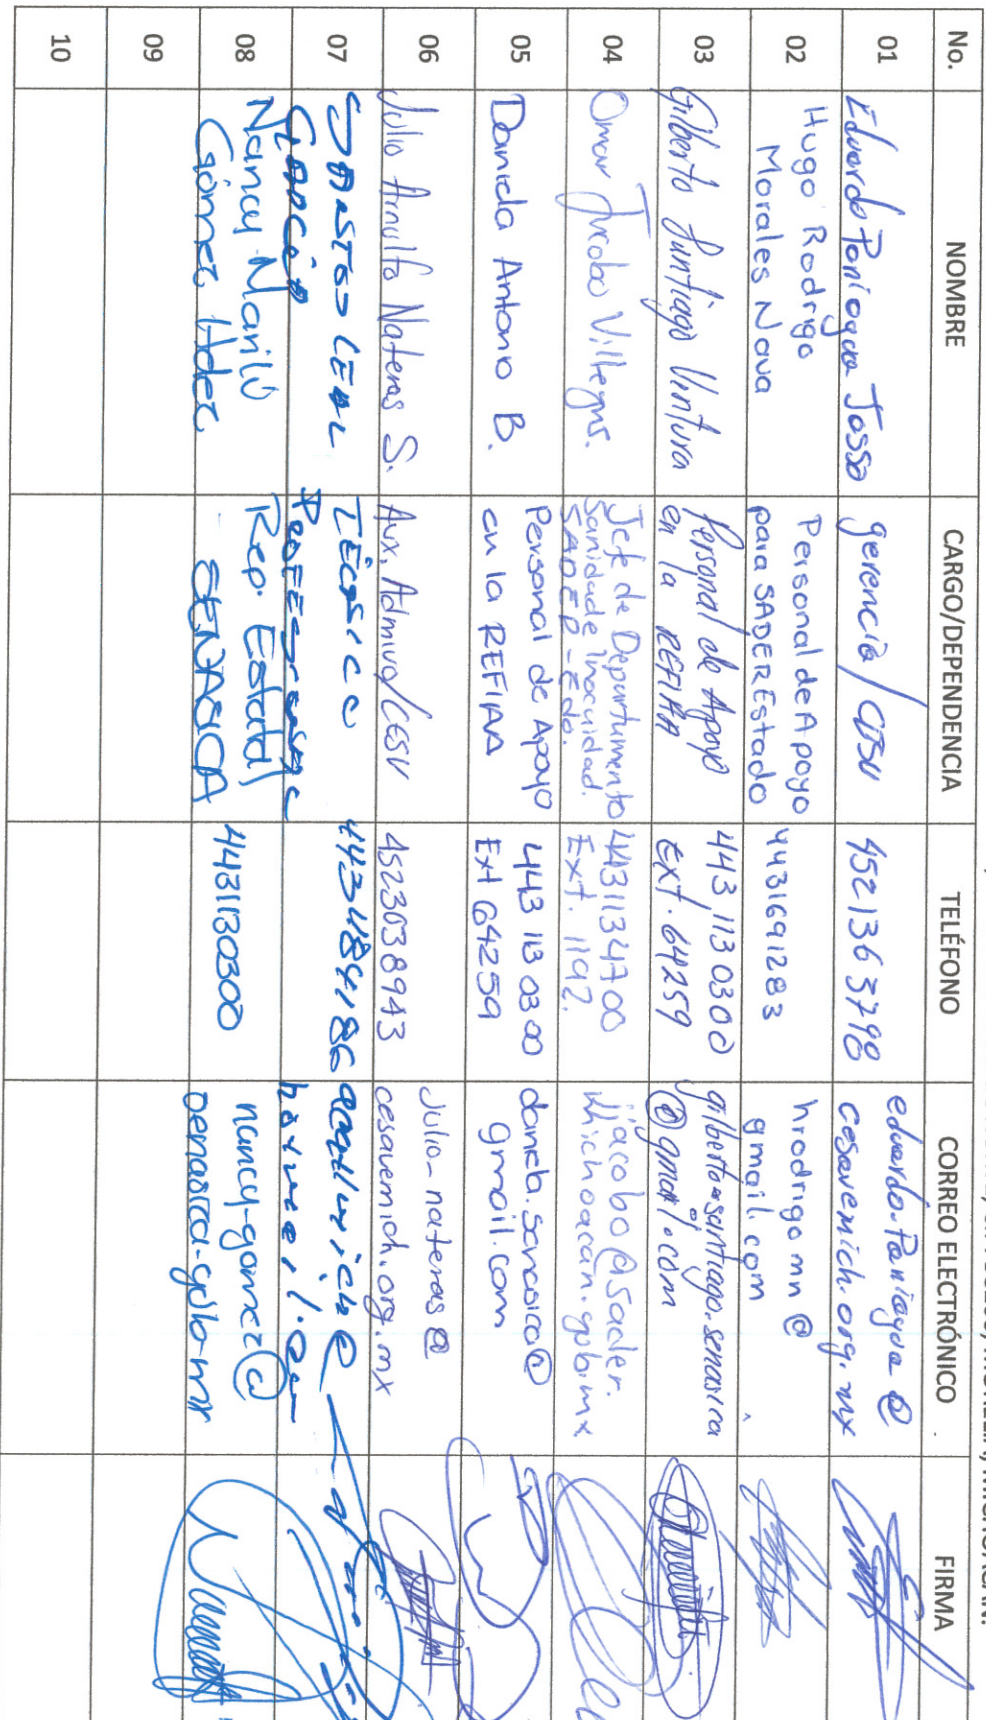 MORELIA, MICHOACÁN.
No.
NOMBRE
CARGO/DEPENDENCIA
TELÉFONO
CORREO ELECTRÓNICO
FIRMA
01
Eduardo Paniagua Jasso
gerencia /
452136 3798
eduardo.Paniagua @
cesavemich.org.mx
02
Hugo Rodrigo
Morales Nava
Personal de Apoyo
para SADER Estado
4431691283
hrodrigo mn @
gmail.com
03
Gilberto Santiago Ventura
Personal de Apoyo
en la REFIAA
443 113 0300
Ext. 64259
gilberto.santiago.senasica
@gmail.com
04
Omar Jacobo Villegas.
Jefe de Departamento
Sanidad e Inocuidad.
SADER-Edo.
4431134700
Ext. 1192.
jacobo@sader.
michoacan.gob.mx
05
Daniela Antonio B.
Personal de Apoyo
en la REFIAA
443 113 03 00
Ext 64259
daniela.senasica@
gmail.com
06
Julio Arnulfo Nateras S.
Aux. Admivo/CESV
4523038943
julio-nateras@
cesavemich.org.mx
07
SANTOS LEAL
GARCÍA
TÉCNICO
4434884186
08
Nancy Marilú
Gómez Hdez.
Rep. Estatal
SENASICA
4431130300
nancy-gomez@
senasica.gob.mx
09
10